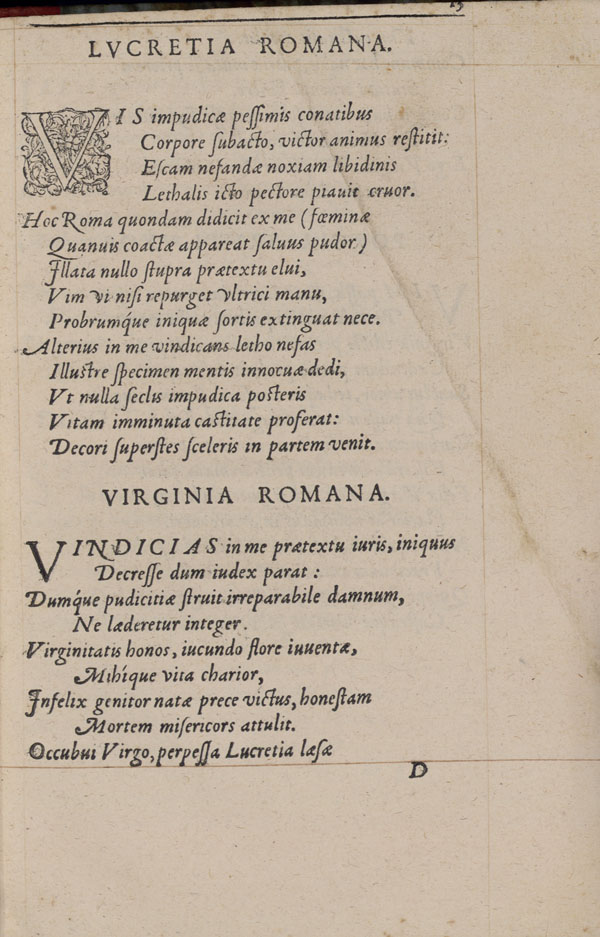 15
LVCRETIA ROMANA.
VIS impudicæ peſſimis conatibus
Corpore ſubacto, victor animus reſtitit:
Eſcam nefandæ noxiam libidinis
Lethalis icto pectore piauit cruor.
Hoc Roma quondam didicit ex me (fœminæ
Quanuis coactæ appareat ſaluus pudor)
Jllata nullo ſtupra prætextu elui,
Vim vi niſi repurget vltrici manu,
Probrumq́ue iniquæ ſortis extinguat nece.
Alterius in me vindicans letho nefas
Illuſtre ſpecimen mentis innocuæ dedi,
Vt nulla ſeclis impudica poſteris
Vitam imminuta caſtitate proferat:
Decori ſuperſtes ſceleris in partem venit.
VIRGINIA ROMANA.
VINDICIAS in me prætextu iuris, iniquus
Decreſſe dum iudex parat:
Dumq́ue pudicitiæ ſtruit irreparabile damnum,
Ne læderetur integer.
Virginitatis honos, iucundo flore iuuentæ,
Mihíque vita charior,
Jnfelix genitor natæ prece victus, honeſtam
Mortem miſericors attulit.
Occubui Virgo, perpeſſa Lucretia læſæ
D